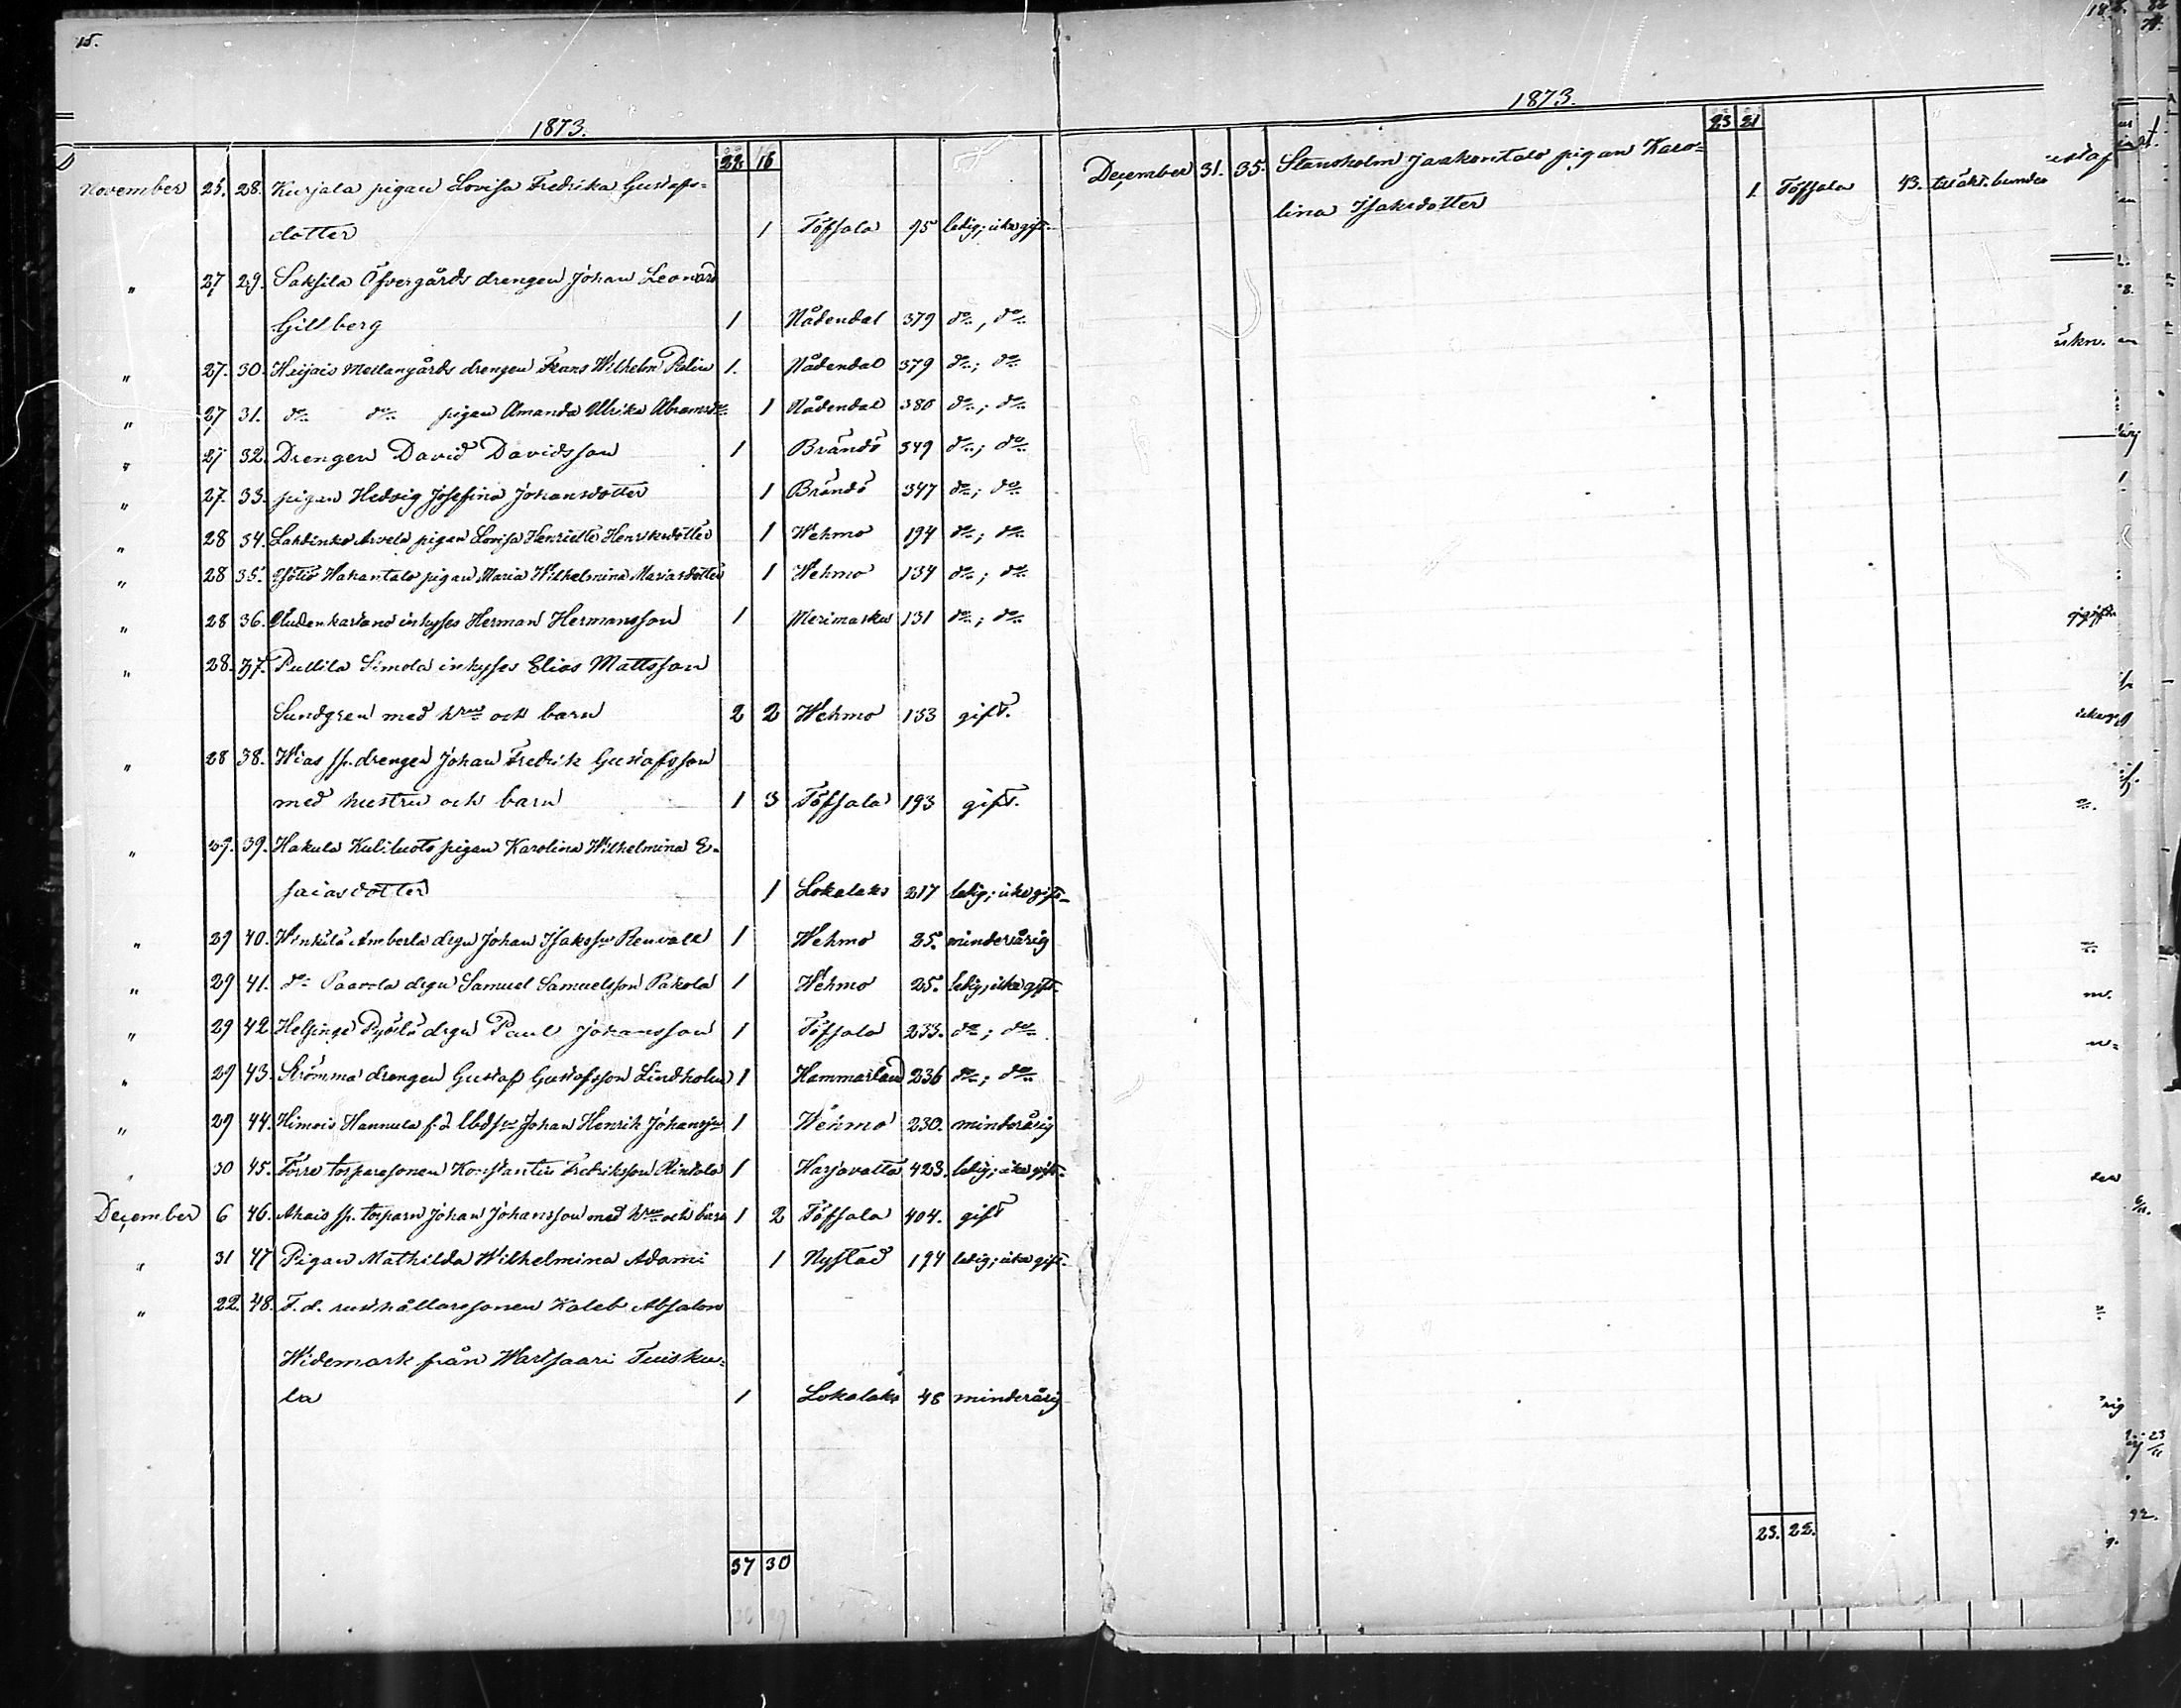 15.
1873.
23 16
November 25. 28. Kurjala pigan Lovisa Fredrika Gustafs-
dotter 1 Töfsala 95 ledig; icke gift.
" 27 29. Saksila Öfvergårds drengen Johan Leonard
Gillberg 1 Nådendal 379 do, do
" 27. 30. Heijais Mellangårds drengen Frans Wilhelm Relin 1. Nådendal 379 do; do
" 27 31. do do pigan Amanda Ulrika Abramsdr 1 Nådendal 380 do; do
" 27 32. Drengen David Davidsson 1 Brändö 349 do; do
" 27. 33. pigan Hedvig Josefina Johansdotter 1 Brändö 347 do; do
" 28 34. Lahdinko Arvela pigan Lovisa Henrietta Henriksdotter 1 Wehmo 194 do; do
" 28 35. Hakantalo pigan Maria Wilhelmina Mariasdotter 1 Wehmo 134 do; do
" 28 36. inhyses Herman Hermansson 1 Merimasku 131 do; do
" 28. 37. Pullila Simola inhyses Elias Mattsson
Sundgren med hru och barn 2 2 Wehmo 133 gift.
" 28 38. Wias sp. drengen Johan Fredrik Gustafsson
med hustru och barn 1 3 Töfsala 193 gift.
" 29. 39. Hakula Kuliluoto pigan Karolina Wilhelmina E-
saiasdotter 1 Lokalaks 217 ledig; icke gift
" 29 40. Winkilä Amberla drgn Johan Isaksson Renvall 1 Wehmo 25. minderårig
" 29 41. do Paavola drgn Samuel Samuelsson Pakola 1 Wehmo 25. ledig, icke gift.
" 29 42 Helsinge Pyölö drgn Paul Johansson 1 Töfsala 233. do; do
" 29 43. Strömma drengen Gustaf Gustafsson Lindholm 1 Hammarland 236 do; do
" 29 44. Himois Hannula f.d. Johan Henrik Johansson 1 Wehmo 230. minderårig
" 30 45. Torre torparesonen Konstantin Fredriksson Rintala 1 Harjavalta 423. ledig; icke gift.
December 6 46. Ahais sp. torparn Johan Johansson med hru och barn 1 2 Töfsala 404. gift
" 31 47 Pigan Mathilda Wilhelmina Adami 1 Nystad 194 ledig; icke gift.
" 22. 48. F.d. rusthållaresonen Kaleb Absalon
Widemark från Wartsaari Tuisku-
la 1 Lokalaks 48 minderårig
37 30
1873.
23 21
December 31. 35. Stansholm Jaakontalo pigan Karo-
lina Isaksdotter 1 Töfsala 43. till äkt. bunden
23. 22.